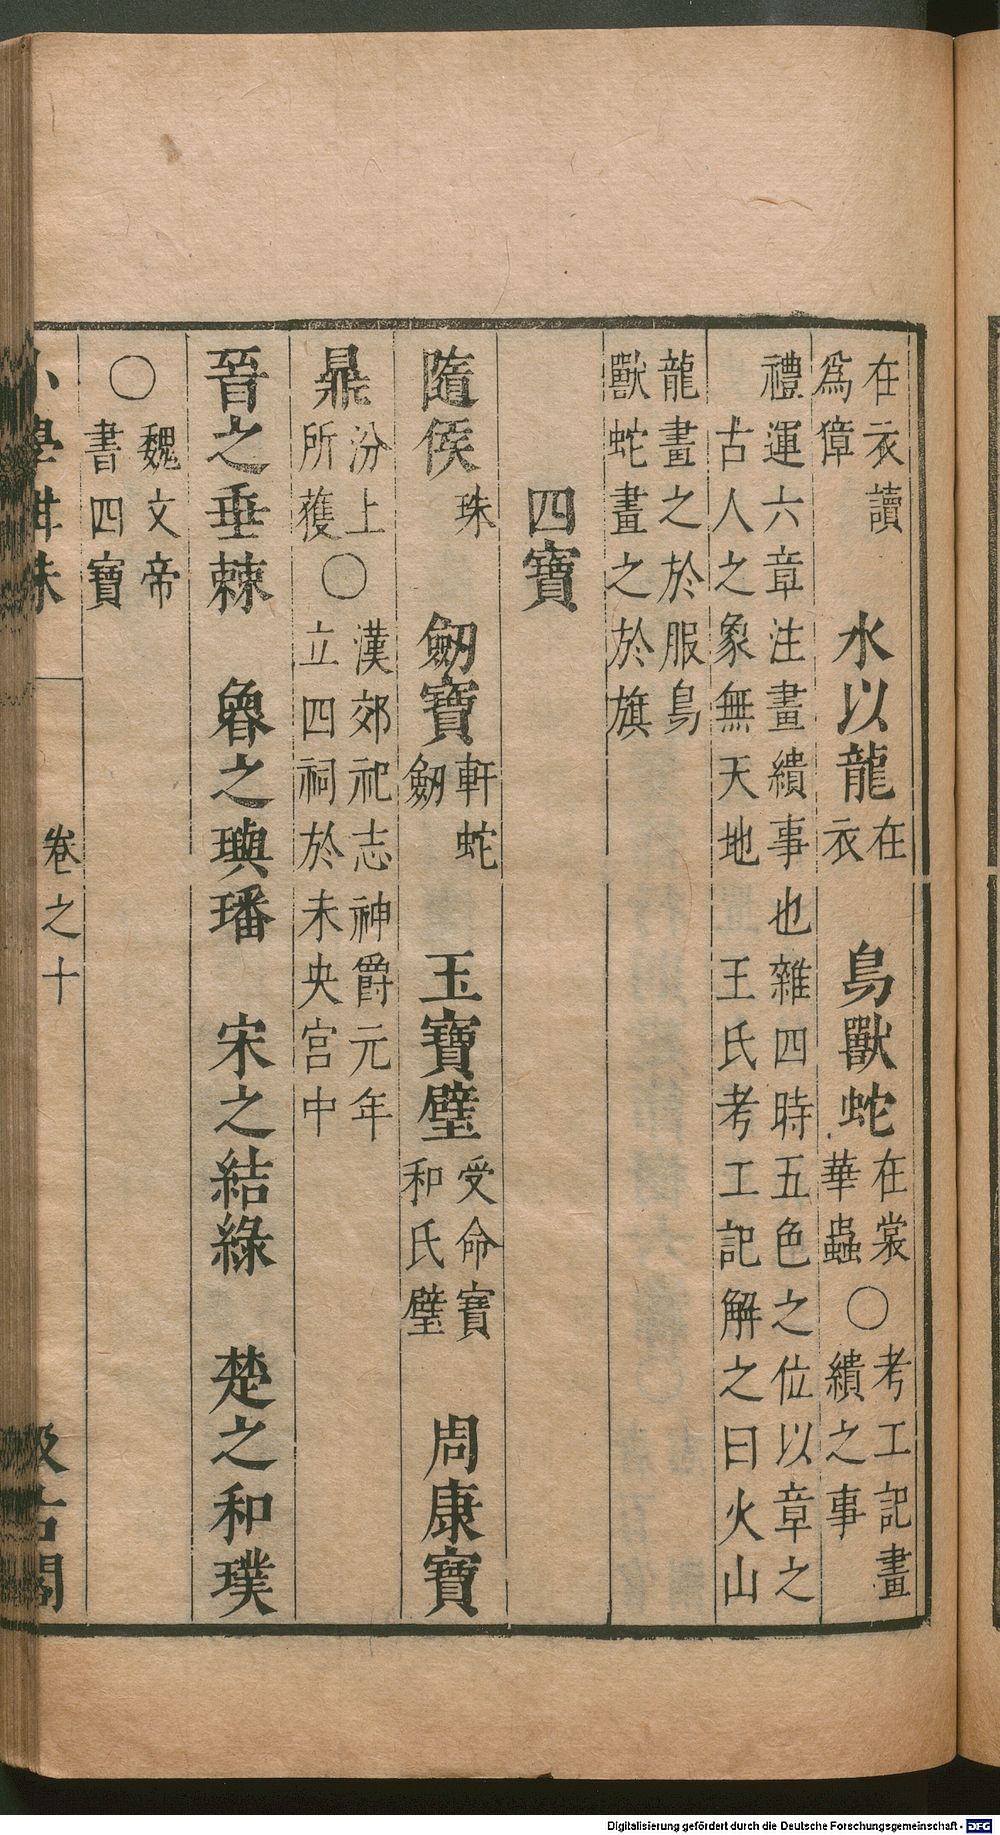 在衣讀爲獐　水以龍在衣　鳥獸蛇在裳華蟲○考工記畫繢之事
禮運六章注畫繢事也雜四時五色之位以章之
古人之象無天地　王氏考工記解之曰火山
龍畫之於服鳥獸蛇畫之於旗
四寶
隨侯珠　劒寶軒蛇劒　玉寶璧受命寶和氏璧　周康寶
鼎汾上所獲○漢郊祀志神爵元年立四祠於未央宮中
晉之垂棘　魯之璵璠　宋之結綠　楚之和璞
○魏文帝書四寶
小學紺珠　卷之十　汲古閣
Digitalisierung gefördert durch die Deutsche Forschungsgemeinschaft - DFG